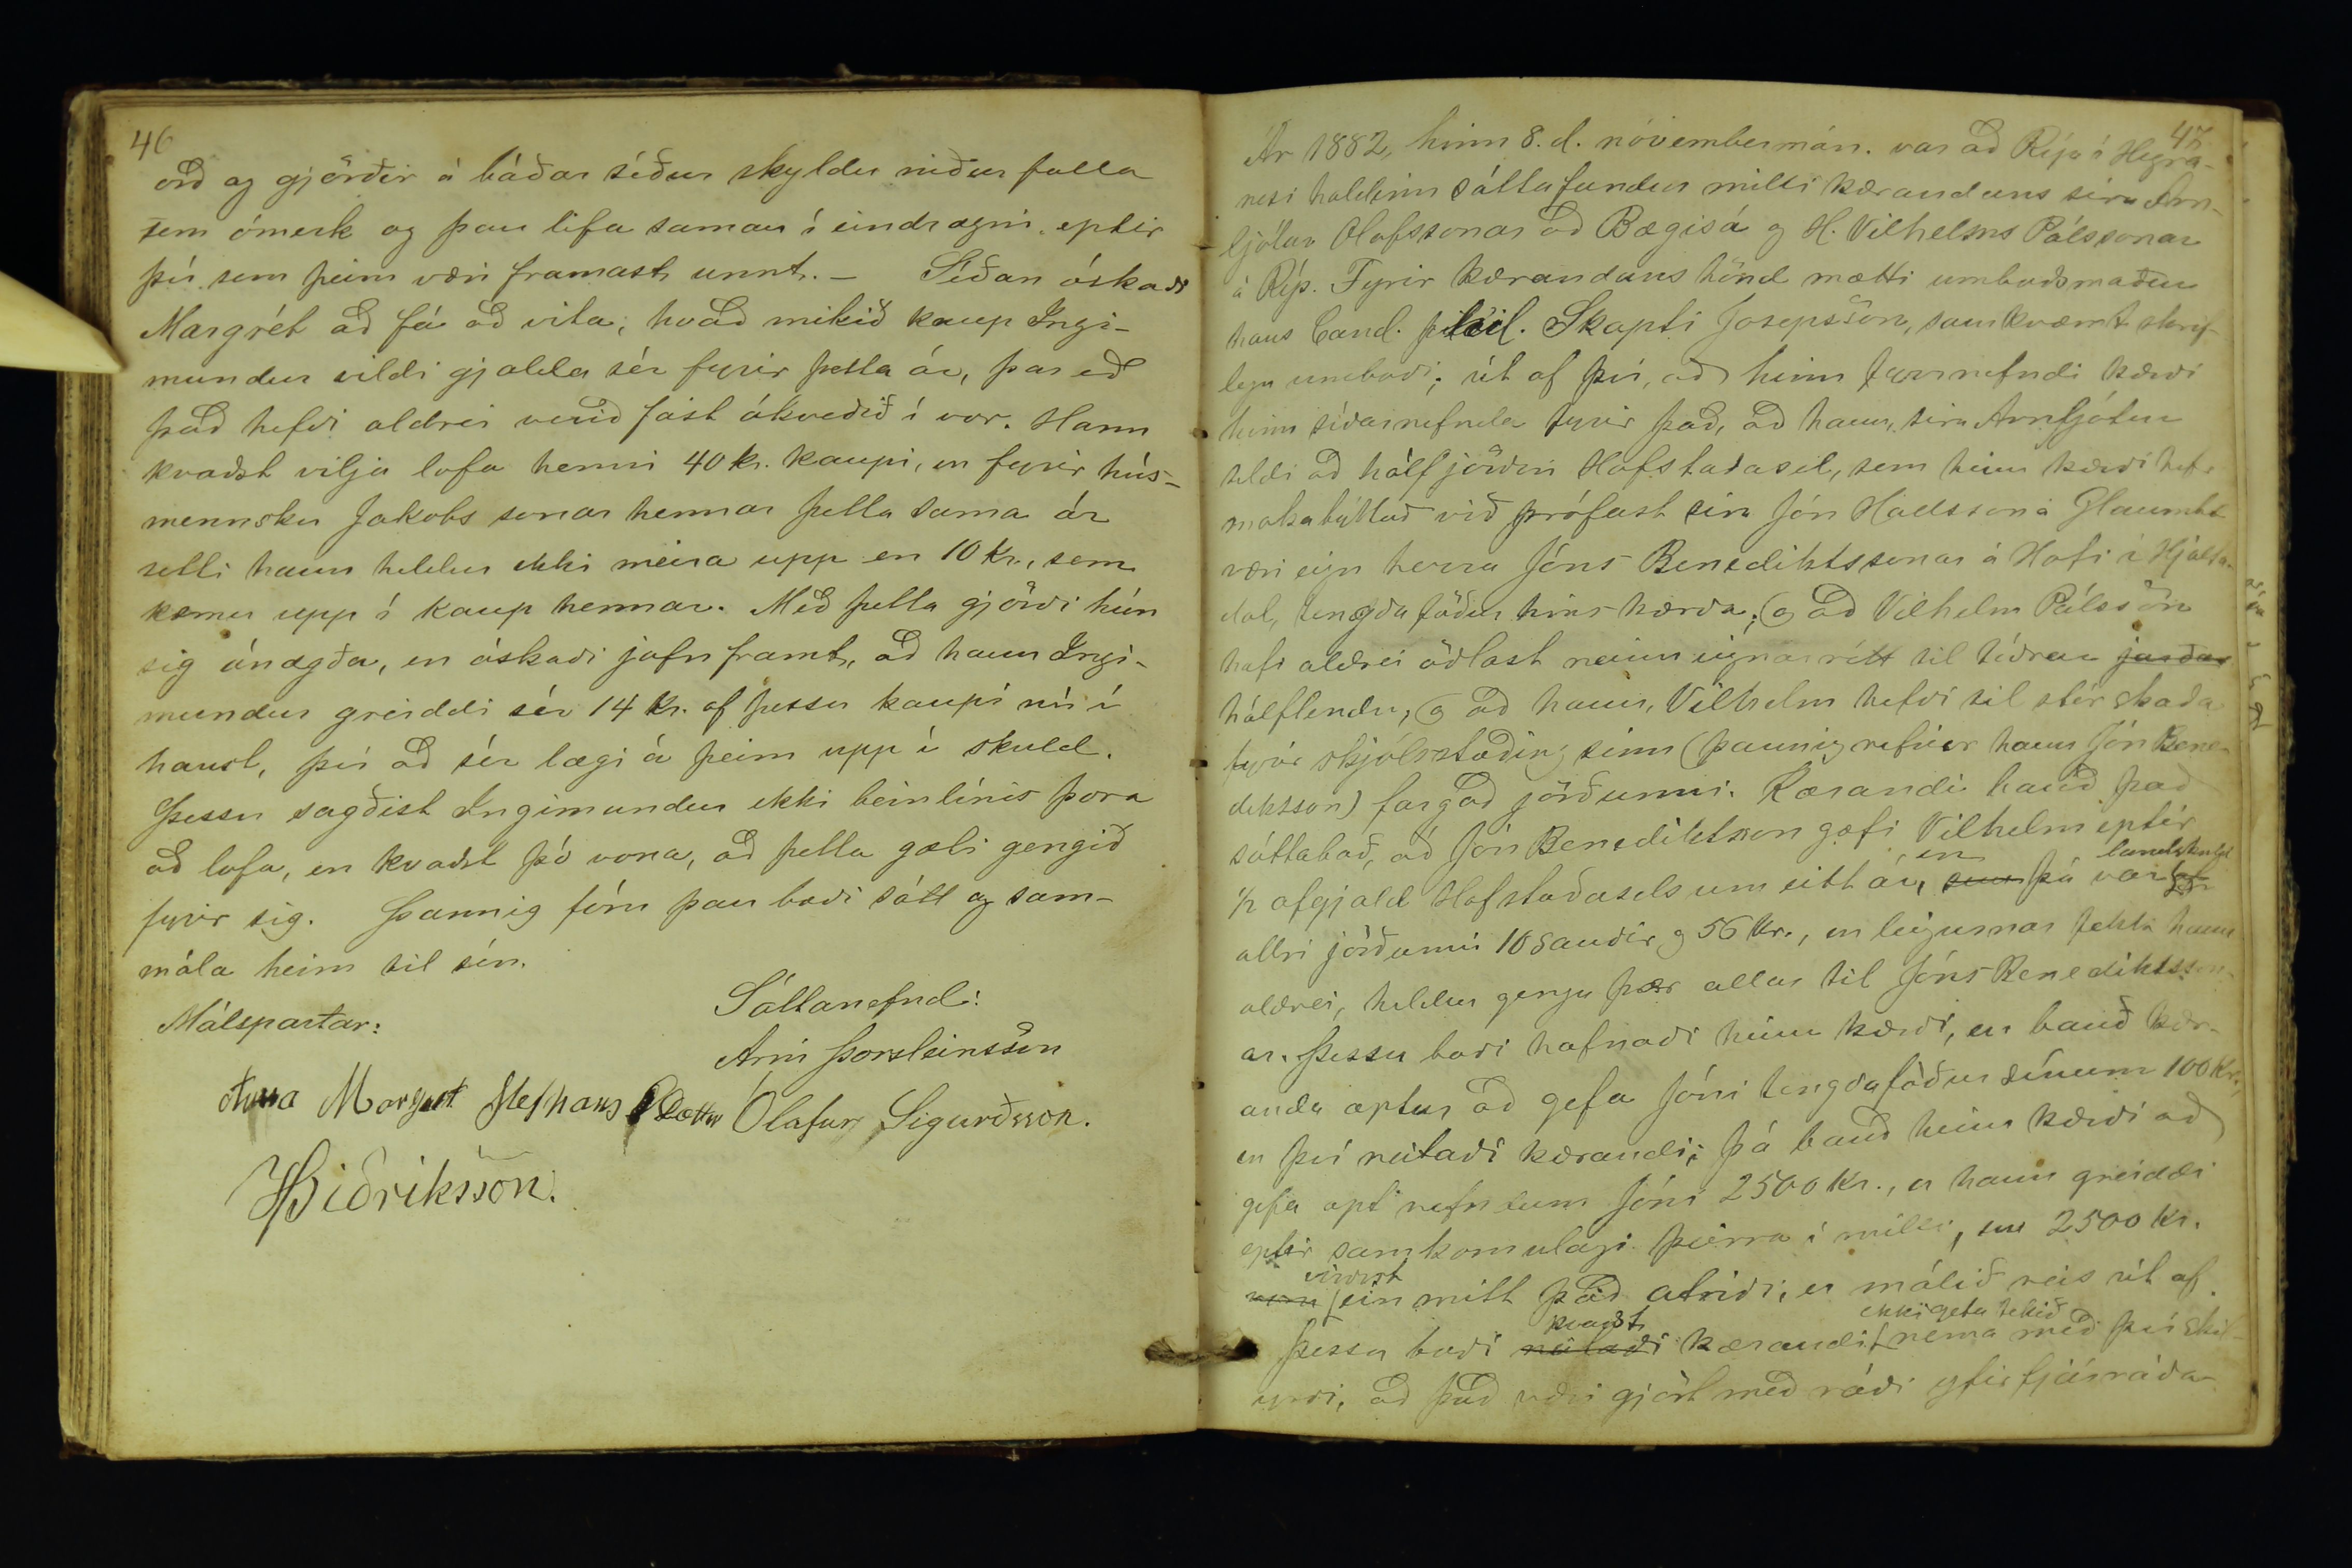 46
orð og gjörðir á báðar síður skyldu niður falla
sem ómerk og þau lifa saman í eindrægni eptir
því sem þeim væri framast unnt. – Síðan óskaði
Margrét að fá að vita, hvað mikið kaup Ingi-
mundur vildi gjalda sér fyrir þetta ár, þar eð
það hefði aldrei verið fast ákveðið í vor. Hann
kvaðst vilja lofa henni 40 kr. kaupi, en fyrir hús-
mennsku Jakobs sonar hennar þetta sama ár
setti hann heldur ekki meira upp en 10 kr., sem
kæmu upp í kaup hennar. Með þetta gjörði hún
sig ánægða, en óskaði jafnframt, að hann Ingi-
mundur greiddi sér 14 kr. af þessu kaupi nú í
haust, því að sér lægi á þeim upp í skuld.
Þessu sagðist Ingimundur ekki beinlínis þora
að lofa, en kvaðst þó vona, að þetta gæti gengið
fyrir sig. Þannig fóru þau bæði sátt og sam-
mála heim til sín.
Málspartar:
Sáttanefnd:
Árni Þorsteinsson
Anna Margret Stephans Dótter
Ólafur Sigurðsson.
Þiðriksson.
47
Ár 1882, hinn 8. d. nóvembermán. var að Ríp í Hegra-
nesi haldinn sáttafundur milli kærandans síra Arn-
ljótar Olafssonar að Bægisá og H. Vilhelms Pálssonar
á Ríp. Fyrir kærandans hönd mætti umboðsmaður
hans Cand. phil. Skapti Josepsson, samkvæmt skrif-
legu umboði, út af því, að hinn fyrrnefndi kærði
hinn síðarnefnda fyrir það, að hann, síra Arnljótur
teldi að hálf jörðin Hofstaðasel, sem hinn kærði hefði
makabýttað við prófast síra Jón Hallsson á Glaumbæ
væri eign herra Jóns Benediktssonar á Hofi í Hjalta-
dal, tengdaföður hins kærða; og að Vilhelm Pálsson
hafi aldrei öðlast neinn eignarrétt til téðrar jarðar
hálflendu, og að hann, Vilhelm hefði til stór skaða
fyrir skjólstæðing sinn (þannig nefnir hann Jón Bene-
diktsson) fargað jörðunni. Kærandi bauð það
sáttaboð, að Jón Benediktsson gæfi Vilhelm eptir
1/2 afgjald Hofstaðasels um eitt ár, en þá var landskuld af
allri jörðunni 10 sauðir og 56 kr., en leigurnar fekk hann
aldrei, heldur gengu þær allar til Jóns Benediktsson-
ar. Þessu boði hafnaði hinn kærði, en bauð kær-
anda aptur að gefa Jóni tengdaföður sínum 100 kr.,
en því neitaði kærandi; þá bauð hinn kærði að
gefa opt nefndum Jóni 2500 kr., er hann greiddi
eptir samkomulagi þeirra í milli, en 2500 kr.
virðist einmitt það atriði, er málið reis út af.
Þessu boði neitaði kvaðst kærandi ekki geta tekið nema með því skil-
yrði, að það væri gjört með ráði yfirfjárráða-